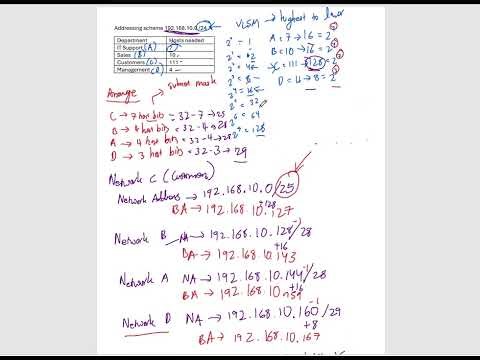 Addressing scheme 192.168.10.0/24
VLSM → highest to lower
Department Hosts needed
IT Support (A) 7
Sales (B) 10
Customers (C) 111
Management (D) 4
2⁰ = 1
2² =
2⁴ = 16
2⁵ = 32
2⁶ = 64
2⁷ = 128
A = 7 → 16 = 2⁴
B = 10 → 16 = 2⁴
C = 111 → 128 = 2⁷
D = 4 → 8 = 2³
Arrange
subnet mask
C → 7 host bits = 32-7 → 25
B → 4 host bits = 32-4 → 28
A → 4 host bits = 32-4 → 28
D → 3 host bits = 32-3 → 29
Network C (Customers)
Network Address → 192.168.10.0/25
+128
BA → 192.168.10.127
Network B NA → 192.168.10.128/28
+16
BA → 192.168.10.143
Network A NA → 192.168.10.144/28
+16
BA → 192.168.10.159
Network D NA → 192.168.10.160/29
+8
BA → 192.168.10.167